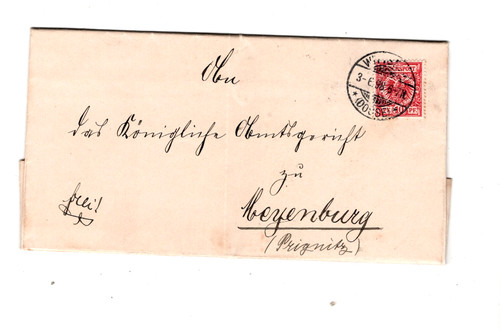 An
das Königliche Amtsgericht
zu
Meyenburg
(Prignitz)
frei!